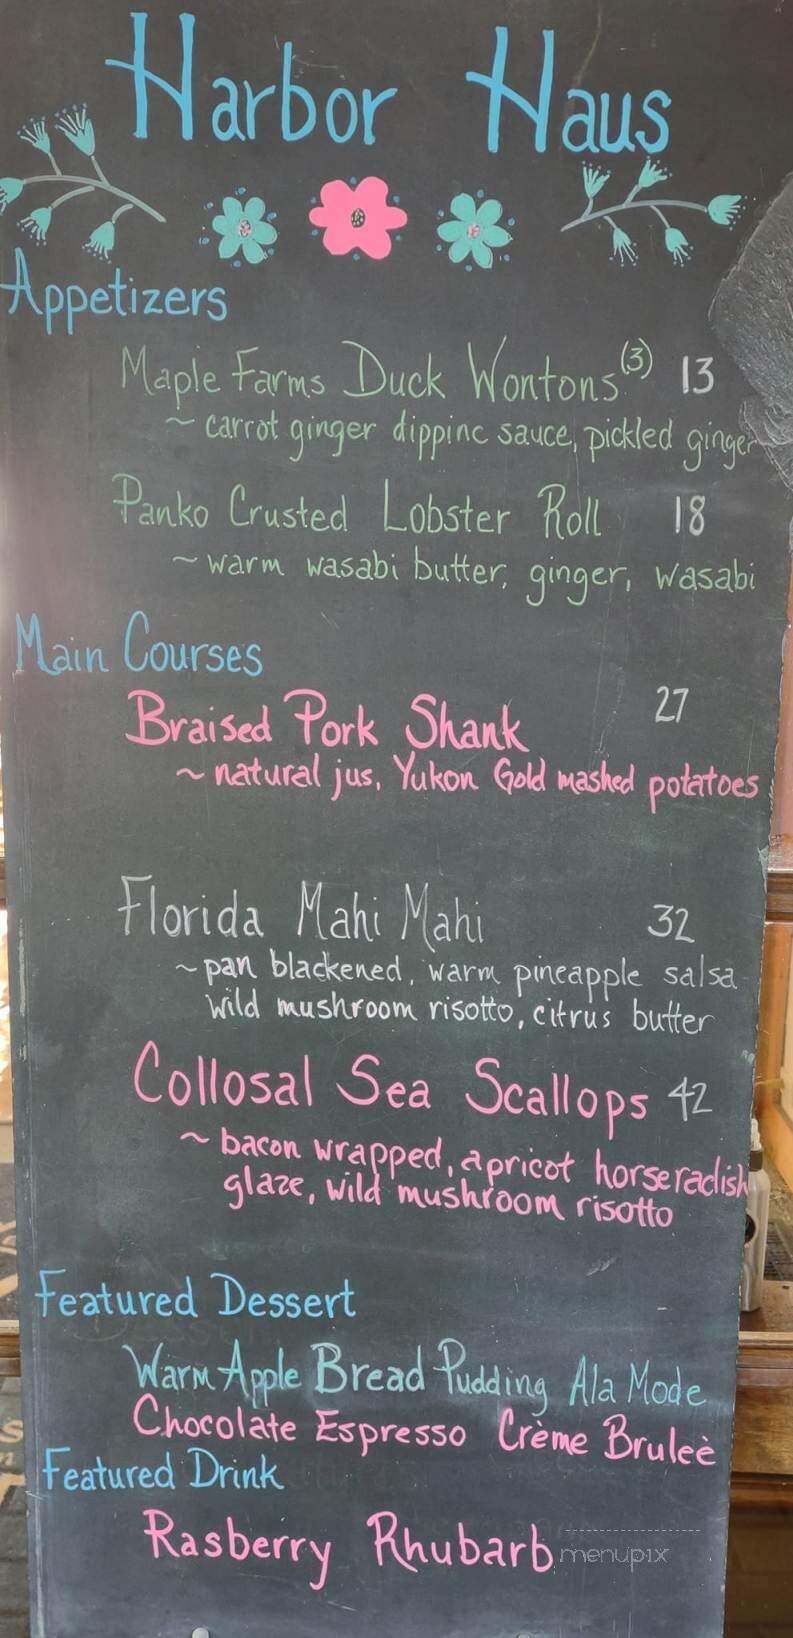 Harbor Haus
Appetizers
Maple Farms Duck Wontons (3) 13
~ carrot ginger dippinc sauce, pickled ginger
Panko Crusted Lobster Roll 18
~ warm wasabi butter, ginger, wasabi
Main Courses
Braised Pork Shank 27
~ natural jus, Yukon Gold mashed potatoes
Florida Mahi Mahi 32
~ pan blackened, warm pineapple salsa
wild mushroom risotto, citrus butter
Collosal Sea Scallops 42
~ bacon wrapped, apricot horseradish
glaze, wild mushroom risotto
Featured Dessert
Warm Apple Bread Pudding Ala Mode
Chocolate Espresso Crème Bruleè
Featured Drink
Rasberry Rhubarb
menupix